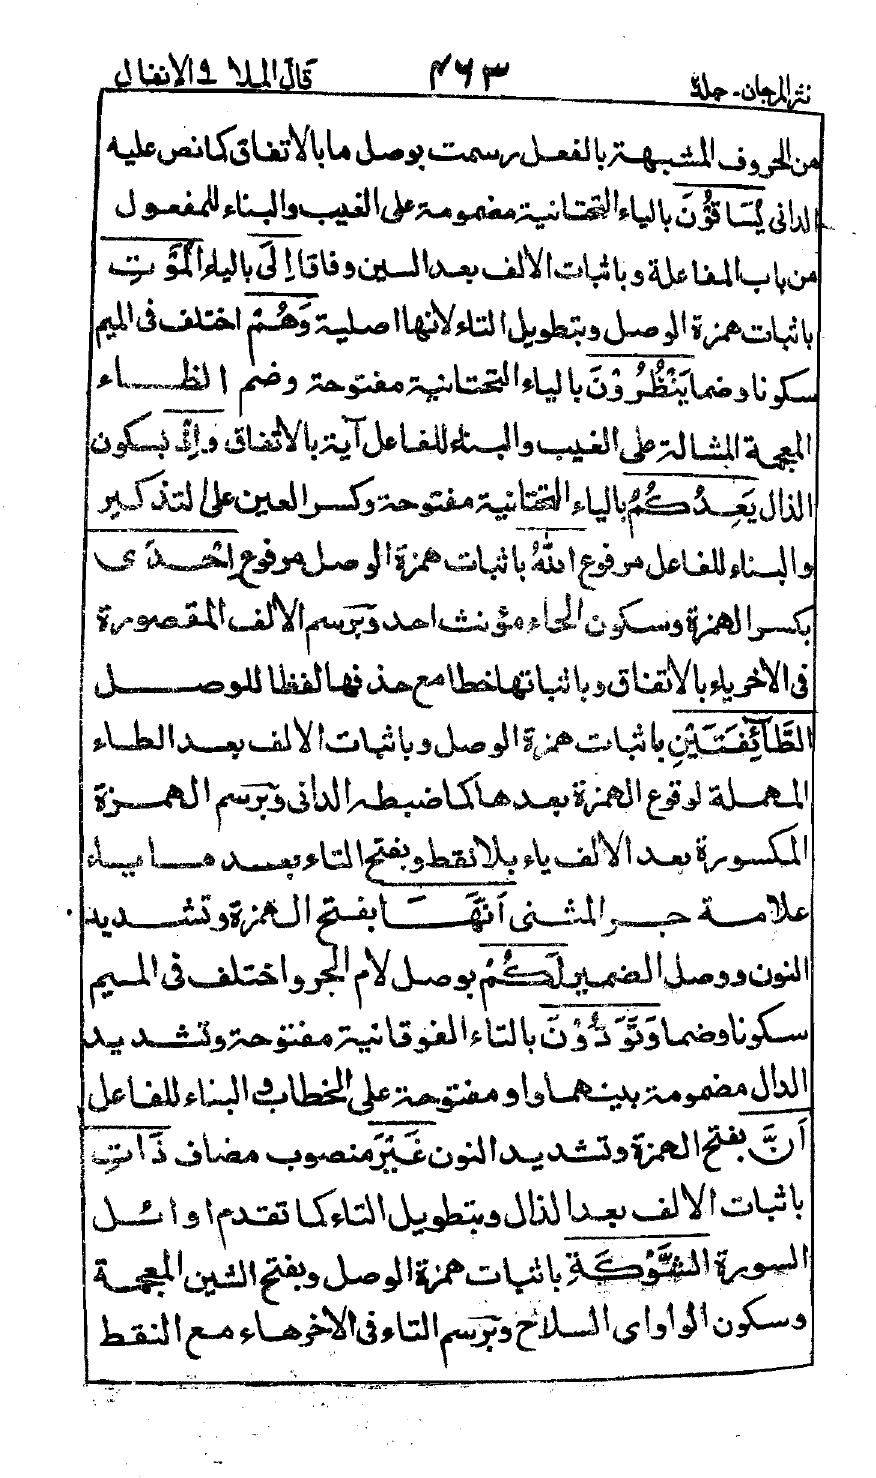 نثر المرجان - جلد ٢ ٤٦٣ قال الملا ٩ الانفال
من الحروف المشبهة بالفعل رسمت بوصل ما بالاتفاق كما نص عليه
الدانى يُسَاقُوْنَ بالياء التحتانية مضمومة على الغيب والبناء للمفعول
من باب المفاعلة وباثبات الالف بعد السين وفاقا اِلَى بالياء الْمَوْتِ
باثبات همزة الوصل وبتطويل التاء لانها اصلية وَهُمْ اختلف فى الميم
سكونا وضما يَنْظُرُوْنَ بالياء التحتانية مفتوحة وضم الظاء
المعجمة المشالة على الغيب والبناء للفاعل آية بالاتفاق وَاِذْ بسكون
الذال يَعِدُكُمُ بالياء التحتانية مفتوحة وكسر العين على التذكير
والبناء للفاعل مرفوع اللّٰهُ باثبات همزة الوصل مرفوع اِحْدَى
بكسر الهمزة وسكون الحاء مؤنث احد وبرسم الالف المقصورة
فى الاخر ياء بالاتفاق وباثباتها خطا مع حذفها لفظا للوصل
الطَّآئِفَتَيْنِ باثبات همزة الوصل وباثبات الالف بعد الطاء
المهملة لوقوع الهمزة بعدها كما ضبطه الدانى وبرسم الهمزة
المكسورة بعد الالف ياء بلا نقط وبفتح التاء بعدها ياء
علامة جر المثنى اَنَّهَا بفتح الهمزة وتشديد
النون ووصل الضمير لَكُمْ بوصل لام الجر واختلف فى الميم
سكونا وضما وَتَوَدُّوْنَ بالتاء الفوقانية مفتوحة وتشديد
الدال مضمومة بينهما واو مفتوحة على الخطاب والبناء للفاعل
اَنَّ بفتح الهمزة وتشديد النون غَيْرَ منصوب مضاف ذَاتِ
باثبات الالف بعد الذال وبتطويل التاء كما تقدم اوائل
السورة الشَّوْكَةِ باثبات همزة الوصل وبفتح الشين المعجمة
وسكون الواو اى السلاح وبرسم التاء فى الاخر هاء مع النقط